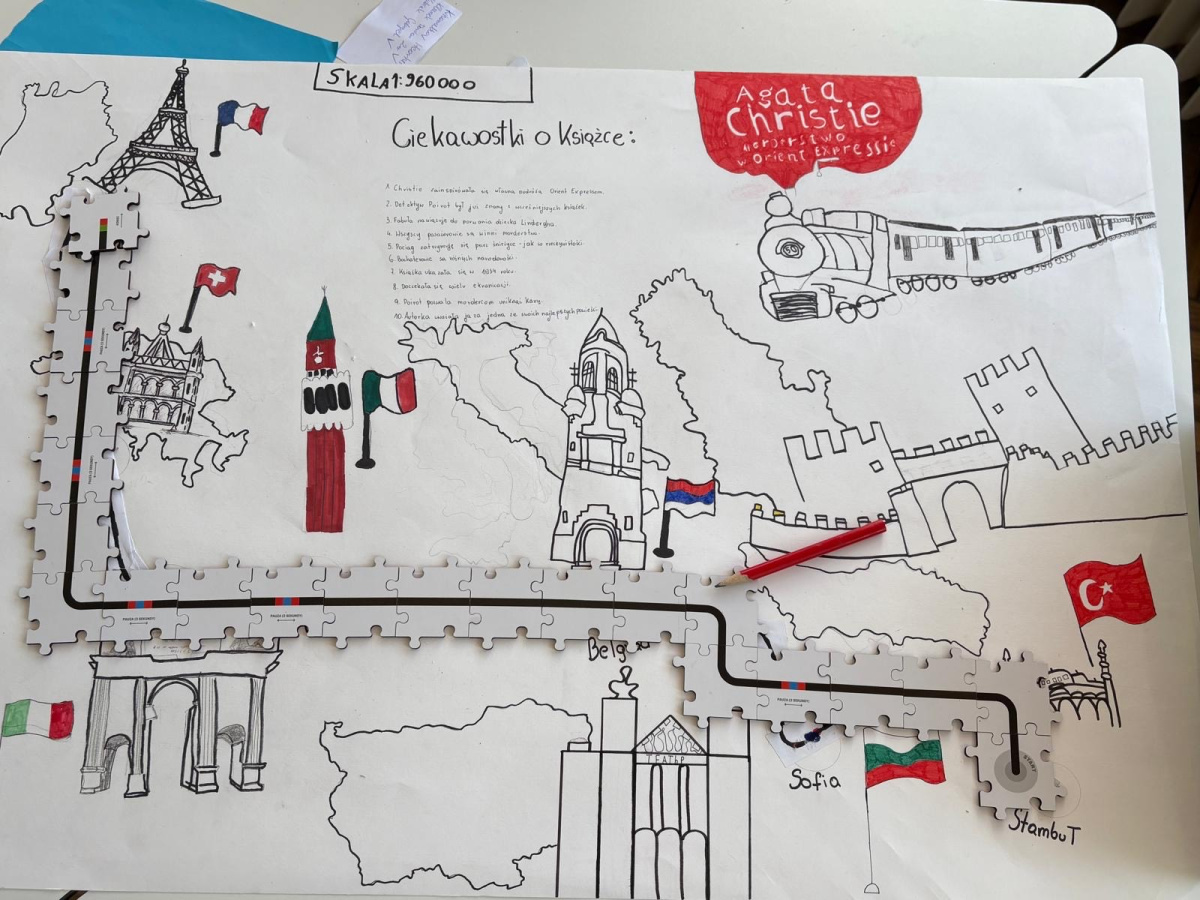 SKALA 1:960000
Ciekawostki o książce:
1 Christie zainspirowała się własną podróżą Orient Expressem.
2. Detektyw Poirot był już znany z wcześniejszych książek.
3. Fabuła nawiązuje do porwania dziecka Lindbergha.
4. Wszyscy pasażerowie są winni morderstwa.
5. Pociąg zatrzymuje się przez śnieżycę - jak w rzeczywistości
6. Bohaterowie są różnych narodowości.
7. Książka ukazała się w 1934 roku.
8. Doczekała się wielu ekranizacji.
9. Poirot pozwala mordercom uniknąć kary.
10. Autorka uważała ją za jedną ze swoich najlepszych powieści.
Agata
Christie
Morderstwo
w Orient Expressie
Belg
ТЕАТЪР
Sofia
START
StambuT